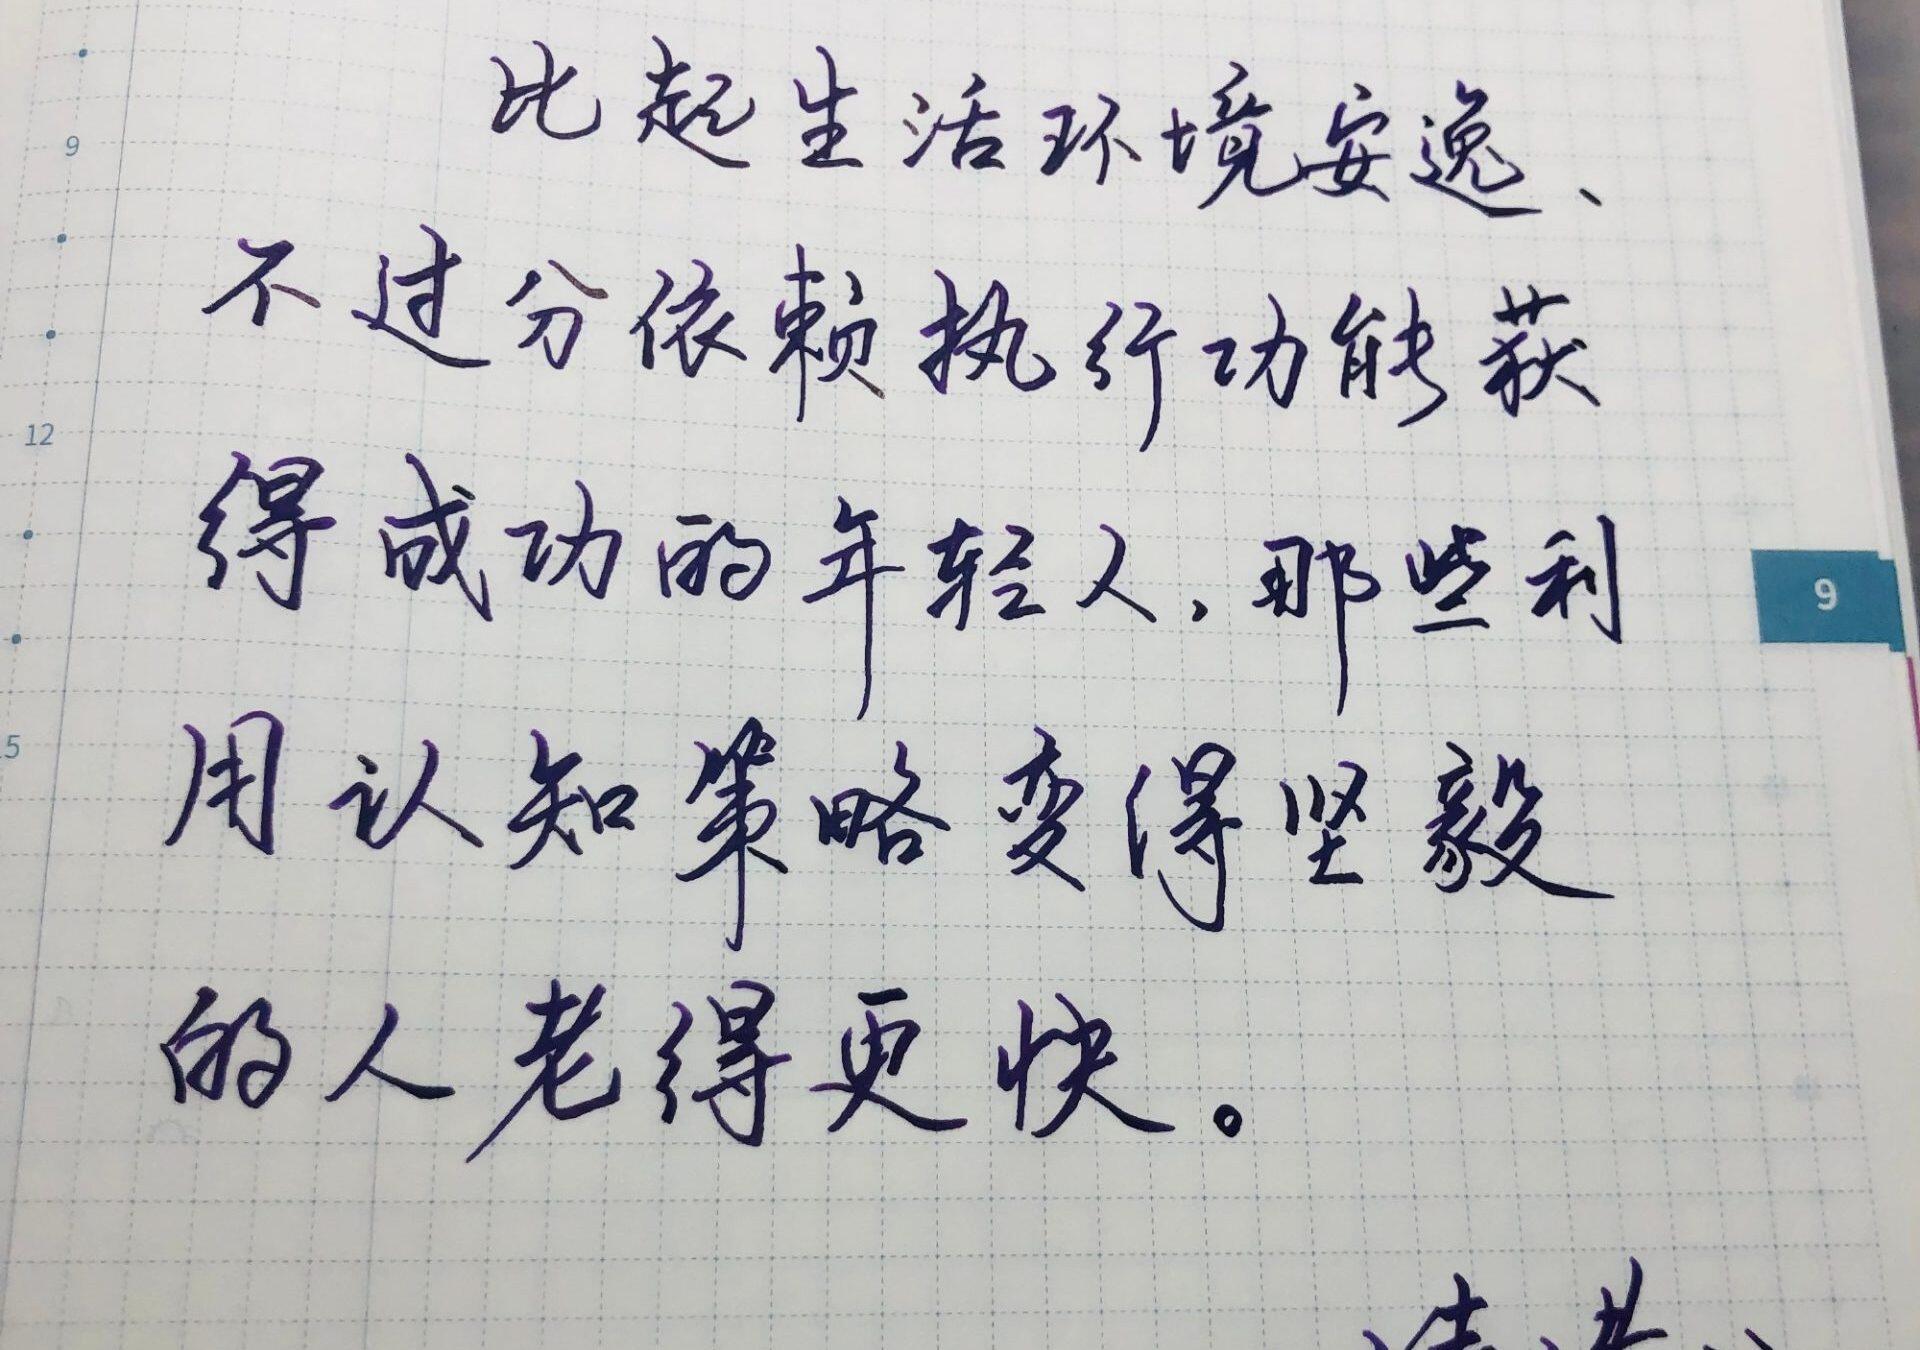 比起生活环境安逸、
不过分依赖执行功能获
得成功的年轻人，那些利
用认知策略变得坚毅
的人老得更快。
9
12
5
9